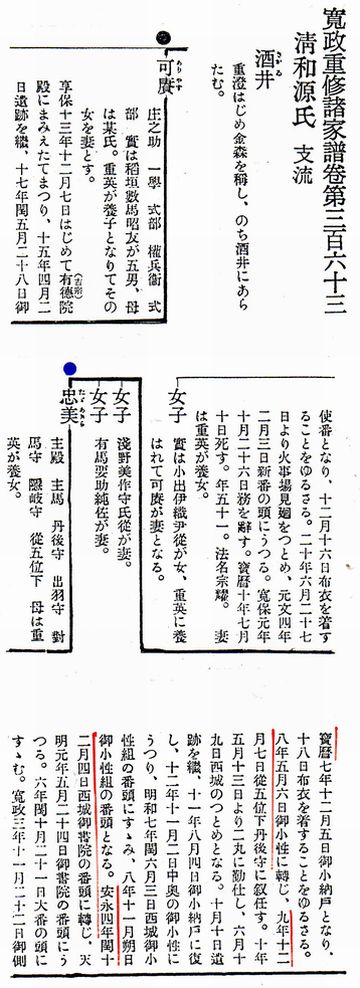 寬政重修諸家譜卷第三百六十三
清和源氏 支流
酒井
さかゐ
重澄はじめ金森を稱し、のち酒井にあら
たむ。
可賡
ありやす
庄之助 一學 式部 權兵衞 式
部 實は稻垣數馬昭友が五男、母
は某氏。重英が養子となりてその
女を妻とす。
享保十三年十二月七日はじめて有德院
(吉宗)
殿にまみえたてまつり、十五年四月二
日遺跡を繼、十七年閏五月二十八日御
使番となり、十二月十六日布衣を着す
ることをゆるさる。二十年六月二十七
日より火事場見廻をつとめ、元文四年
二月三日新番の頭にうつる。寬保元年
十月二十六日務を辭す。寶曆十年七月
十日死す。年五十一。法名宗耀。 妻
は重英が養女。
女子
實は小出伊織尹從が女、重英に養
はれて可賡が妻となる。
女子
淺野美作守氏從が妻。
女子
有馬要助純佐が妻。
忠美
たゞあきら
主殿 主馬 丹後守 出羽守 對
馬守 隱岐守 從五位下 母は重
英が養女。
寶曆七年十二月五日御小納戸となり、
十八日布衣を着することをゆるさる。
八年五月六日御小性に轉じ、九年十二
月七日從五位下丹後守に敍任す。十年
五月十三日より二丸に勤仕し、六月十
九日西城のつとめとなる。十月十日遺
跡を繼、十一年八月四日御小納戸に復
し、十二年十一月二日中奥の御小性に
うつり、明和七年閏六月三日西城御小
性組の番頭にすゝみ、八年十一月朔日
御小性組の番頭となる。安永四年閏十
二月四日西城御書院の番頭に轉じ、天
明元年五月二十四日御書院の番頭にう
つる。六年閏十月二十一日大番の頭に
すゝむ。寬政三年十一月二十二日御側